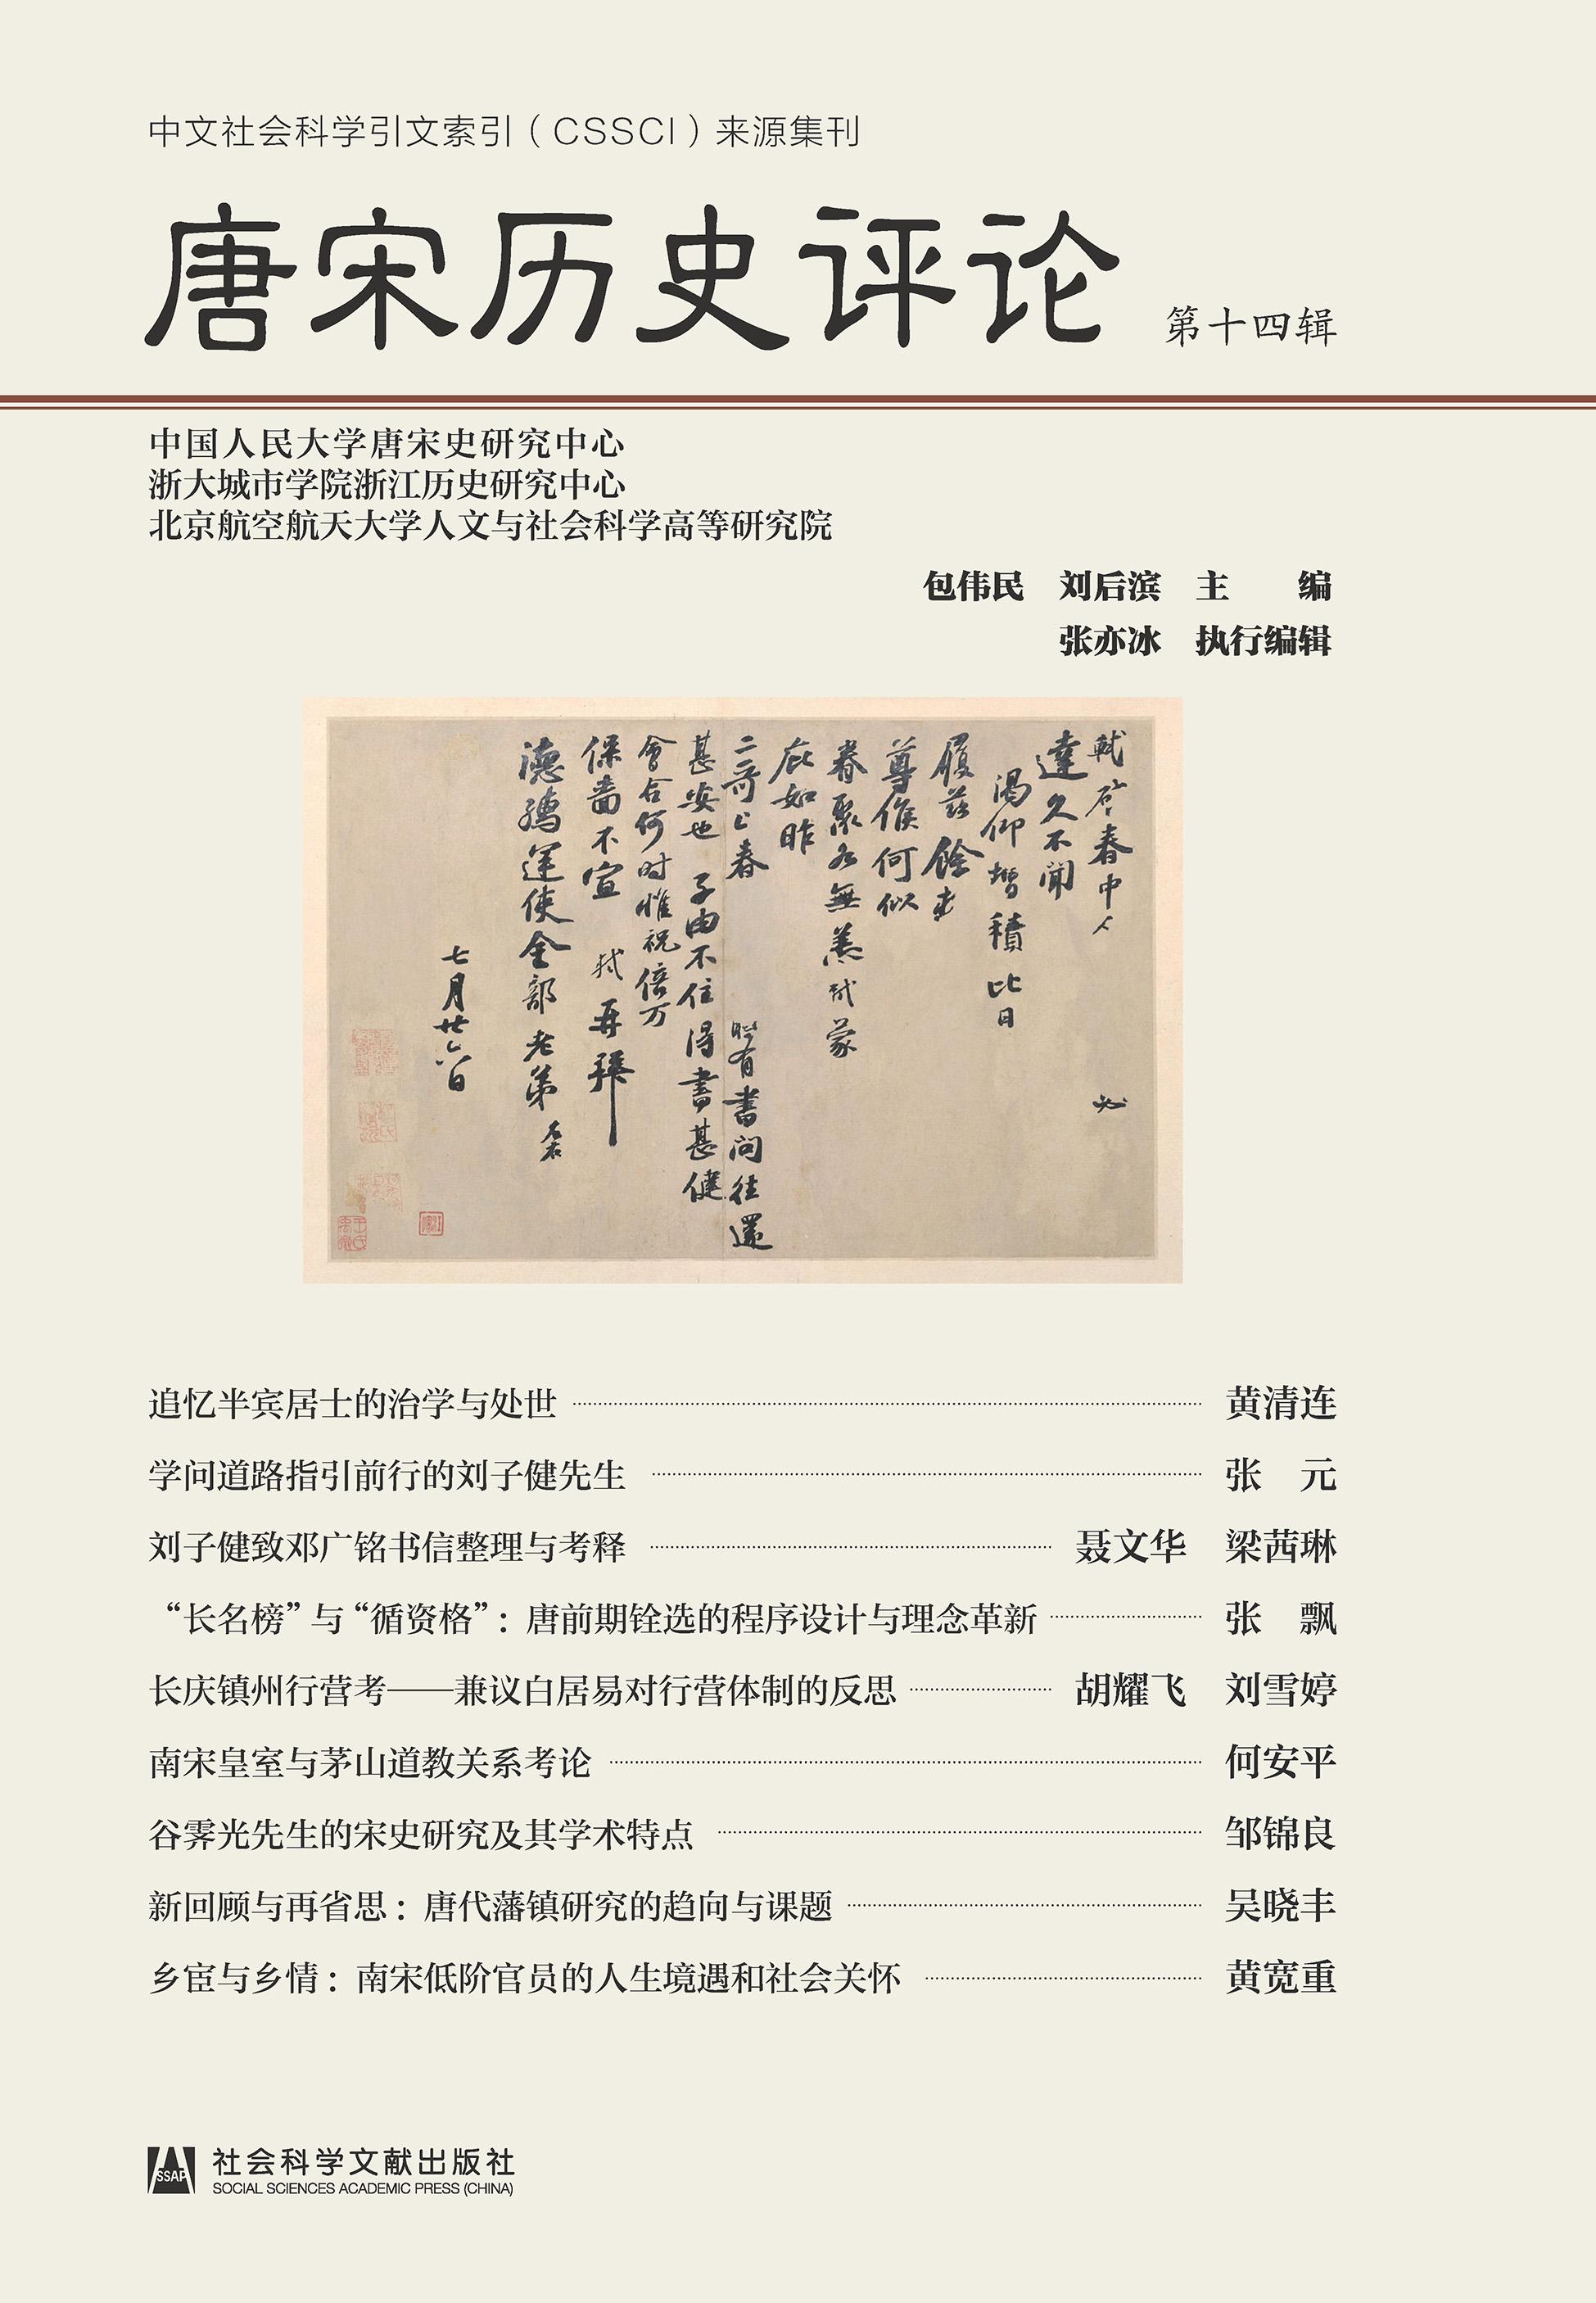 中文社会科学引文索引(CSSCI)来源集刊
唐宋历史评论 第十四辑
中国人民大学唐宋史研究中心
浙大城市学院浙江历史研究中心
北京航空航天大学人文与社会科学高等研究院
包伟民 刘后滨 主 编
张亦冰 执行编辑
轼启春中人
達久不聞
渴仰增積比日
履茲餘
尊候何似
眷聚各無恙轼蒙
庇如昨
二哥上春 有書問往還
甚安也子由不住得書甚健
會合何时惟祝倍万
保嗇不宣 轼再拜
德孺運使金部老弟
七月廿六日
追忆半宾居士的治学与处世 黄清连
学问道路指引前行的刘子健先生 张 元
刘子健致邓广铭书信整理与考释 聂文华 梁茜琳
“长名榜”与“循资格”：唐前期铨选的程序设计与理念革新 张 飘
长庆镇州行营考——兼议白居易对行营体制的反思 胡耀飞 刘雪婷
南宋皇室与茅山道教关系考论 何安平
谷霁光先生的宋史研究及其学术特点 邹锦良
新回顾与再省思：唐代藩镇研究的趋向与课题 吴晓丰
乡宦与乡情：南宋低阶官员的人生境遇和社会关怀 黄宽重
SSAP 社会科学文献出版社
SOCIAL SCIENCES ACADEMIC PRESS (CHINA)